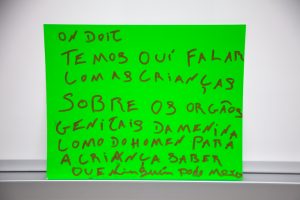 ON DOIT
TEMOS QUI FALAR
COM AS CRIANÇAS
SOBRE OS ORGÃOS
GENITAIS DA MENINA
COMO DO HOMEN PARA
A CRIANÇA SABER
QUE NINGUÉM PODE MEXE